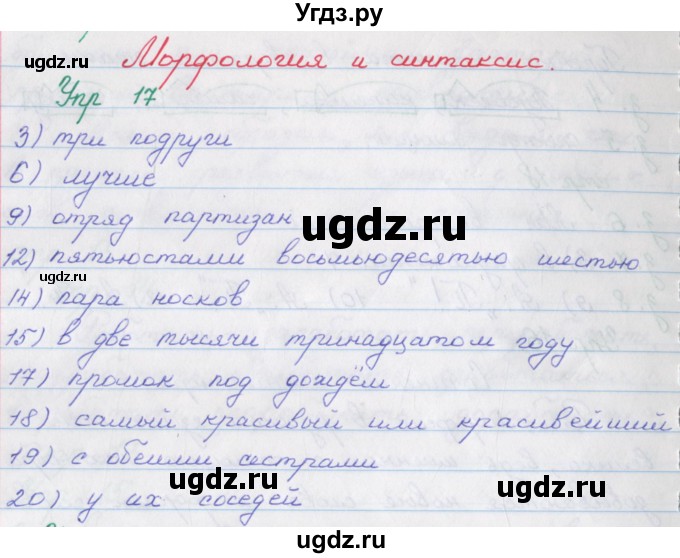 Угдз.ру
Морфология и синтаксис.
Упр 17
3) три подруги
6) лучше
9) отряд партизан
12) пятьюстами восьмьюдесятью шестью
14) пара носков
15) в две тысячи тринадцатом году
17) промок под дождём
18) самый красивый или красивейший
19) с обеими сестрами
20) у их соседей
ugdz.ru
ugdz.ru
ugdz.ru
ugdz.ru
ugdz.ru
ugdz.ru
ugdz.ru
ugdz.ru
ugdz.ru